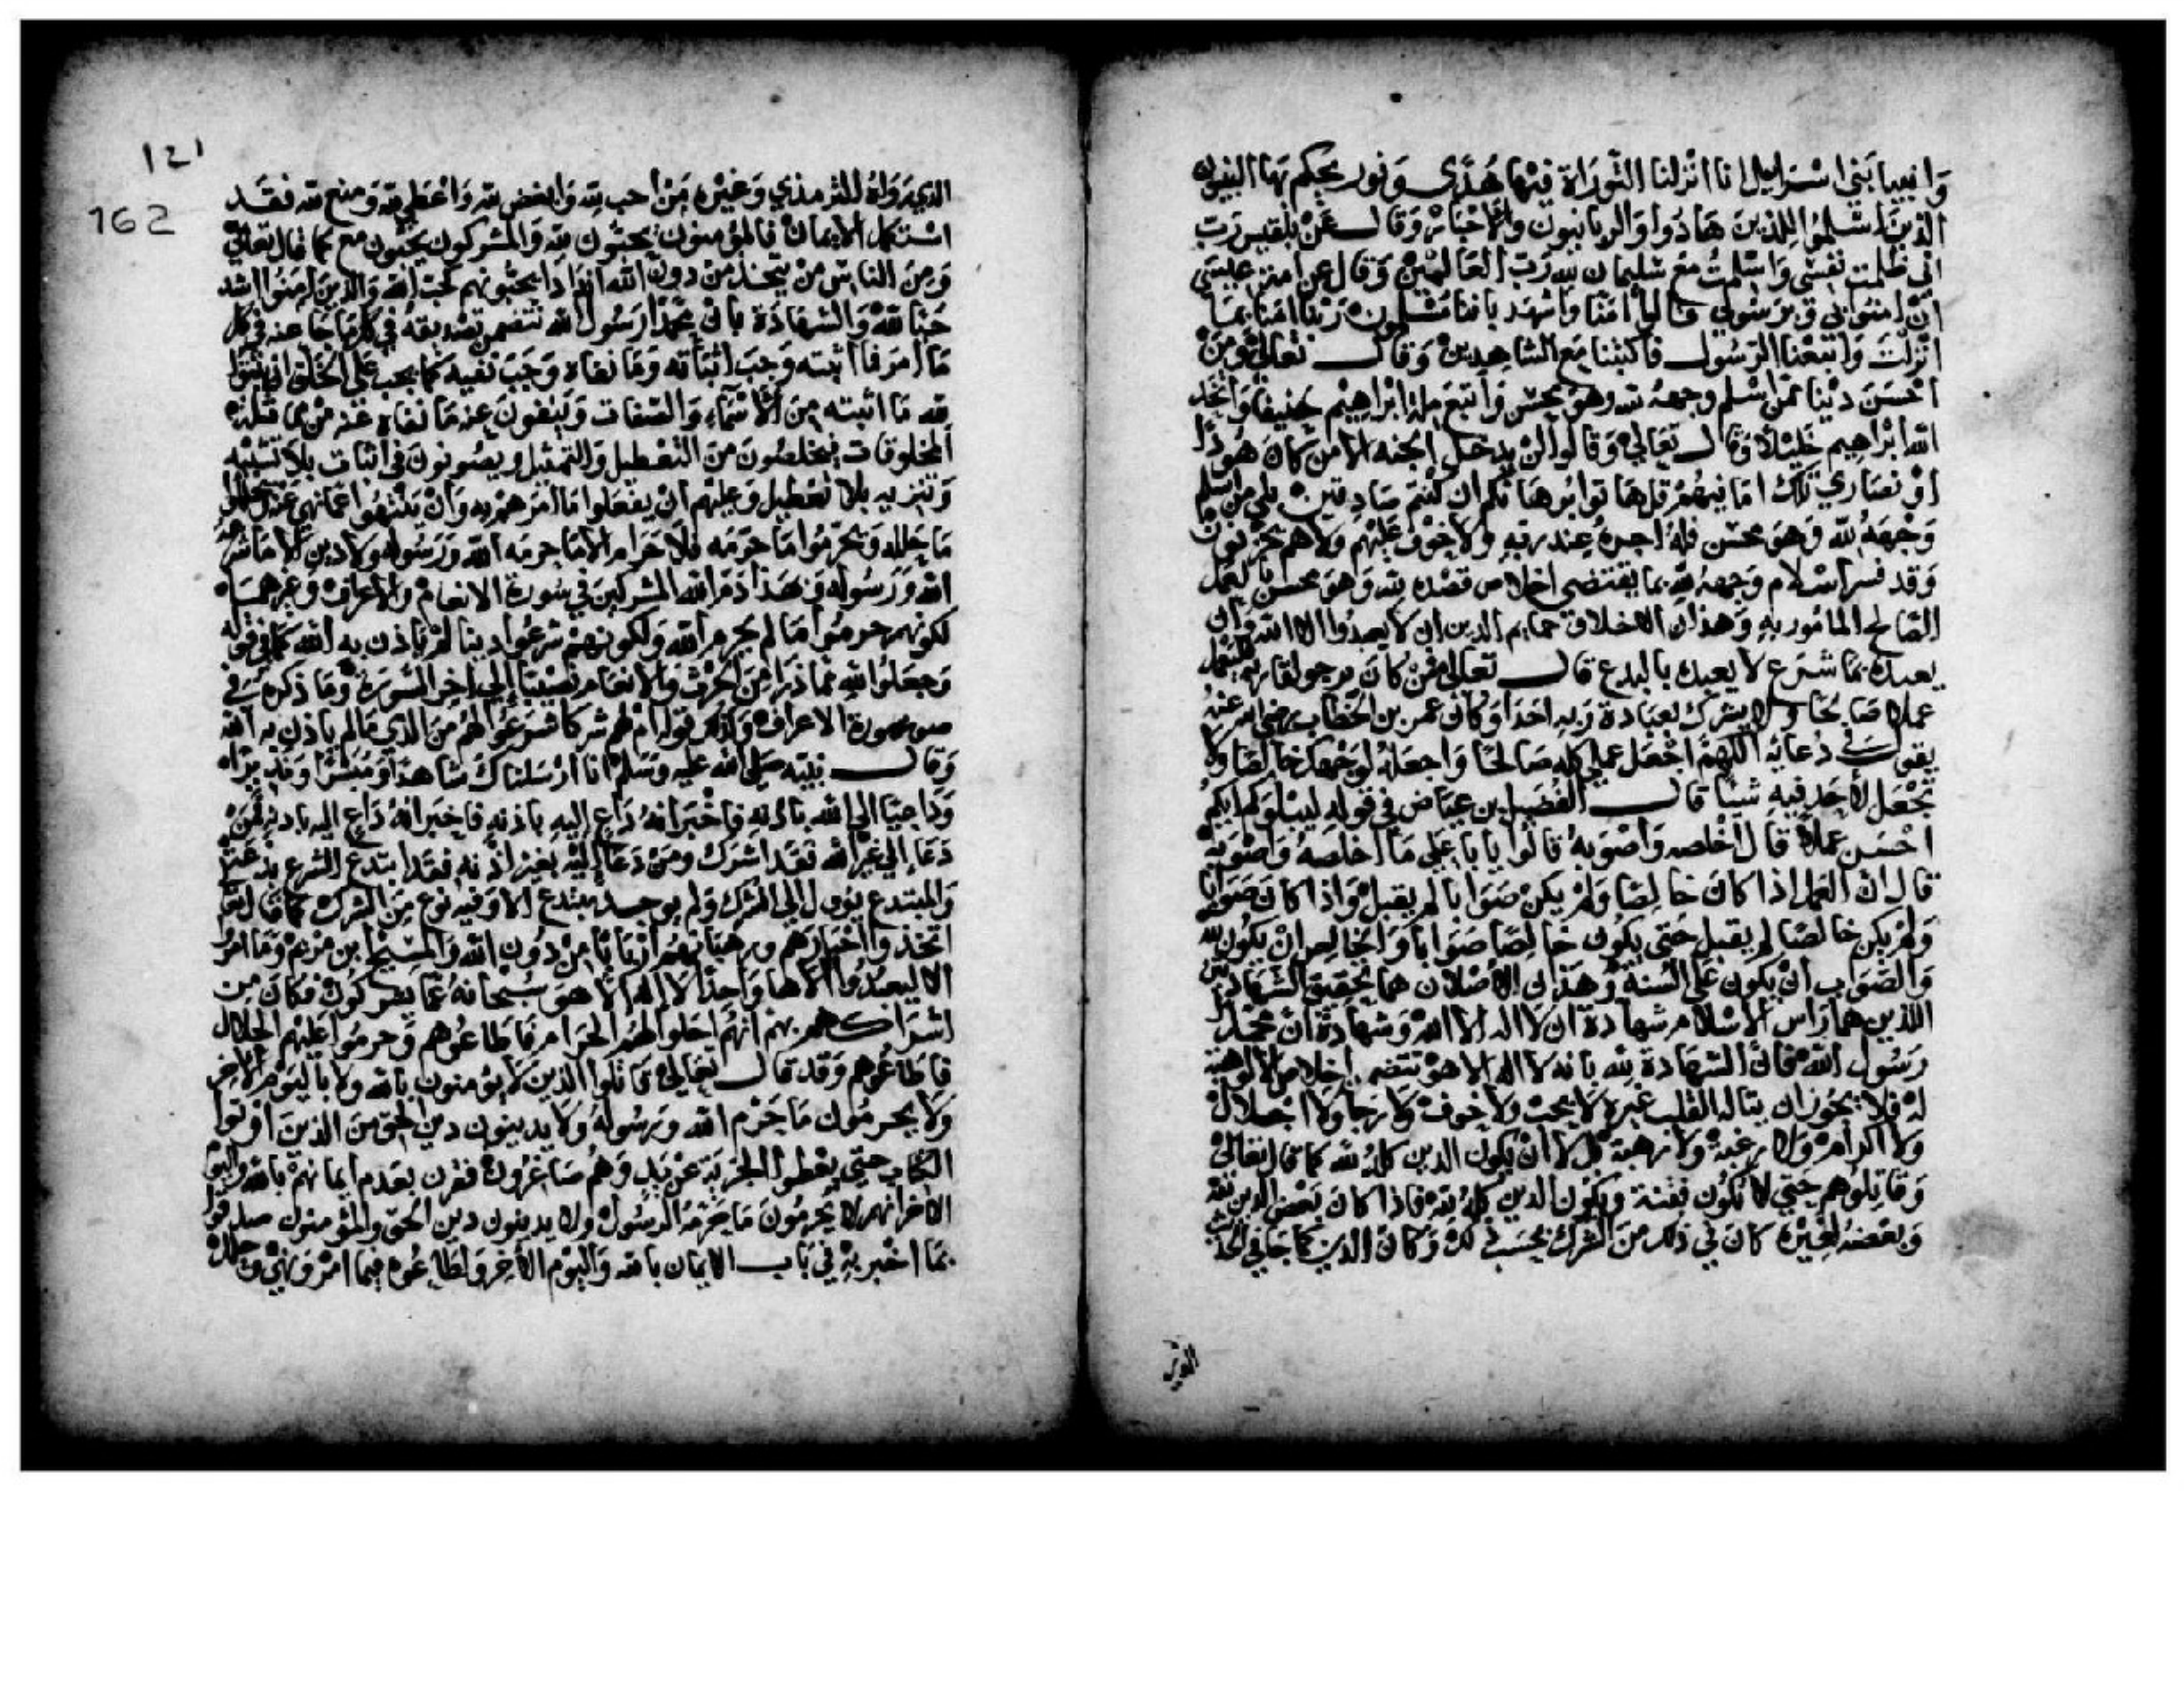 وانبيا بني اسراييل انا انزلنا التوراة فيها هدى ونور يحكم بها النبيون
الذين اسلموا للذين هادوا والربانيون والاحبار وقال عن بلقيس رب
اني ظلمت نفسي واسلمت مع سليمان لله رب العالمين وقال عن امة عيسى
ان امنوا بي وبرسولي قالوا امنا واشهد باننا مسلمون ربنا امنا بما
انزلت واتبعنا الرسول فاكتبنا مع الشاهدين وقال تعالى ومن
احسن دينا ممن اسلم وجهه لله وهو محسن واتبع ملة ابراهيم حنيفا واتخذ
الله ابراهيم خليلا وقال تعالى وقالوا لن يدخل الجنة الا من كان هودا
او نصارى تلك امانيهم قل هاتوا برهانكم ان كنتم صادقين بلى من اسلم
وجهه لله وهو محسن فله اجره عند ربه ولا خوف عليهم ولا هم يحزنون
وقد فسر اسلام وجهه لله بما يقتضي اخلاص قصده لله وهو محسن بالعمل
الصالح المامور به وهذان الاخلاق جماع الدين ان لا يعبدوا الا الله وان
يعبدك بما شرع لا يعبدك بالبدع قال تعالى فمن كان يرجو لقا ربه فليعمل
عملا صالحا ولا يشرك بعبادة ربه احدا وكان عمر بن الخطاب رضي الله عنه
يقول في دعائه اللهم اجعل عملي كله صالحا واجعله لوجهك خالصا ولا
تجعل لاحد فيه شيئا قال الفضيل بن عياض في قوله ليبلوكم ايكم
احسن عملا قال اخلصه واصوبه قالوا يا با علي ما اخلصه واصوبه
قال ان العمل اذا كان خالصا ولم يكن صوابا لم يقبل واذا كان صوابا
ولم يكن خالصا لم يقبل حتى يكون خالصا صوابا والخالص ان يكون لله
والصواب ان يكون على السنة وهذان الاصلان هما تحقيق الشهادتين
اللذين هما راس الاسلام شهادة ان لا اله الا الله وشهادة ان محمدا
رسول الله فان الشهادة لله بانه لا اله الا هو تتضمن اخلاص الالوهية
له فلا يجوز ان يتاله القلب غيره لا بحب ولا خوف ولا رجا ولا اجلال
ولا اكرام ولا رغبة ولا رهبة بل لا ان يكون الدين كله لله كما قال تعالى
وقاتلوهم حتى لا تكون فتنة ويكون الدين كله لله فاذا كان بعض الدين لله
وبعضه لغيره كان في ذلك من الشرك بحسب ذلك وكان الدين كما جا في الحد
الدين
121
162
الذي رواه الترمذي وغيره من احب لله وابغض لله واعطى لله ومنع لله فقد
استكمل الايمان فالمؤمنون يحبون لله والمشركون يحبون مع كما قال تعالى
ومن الناس من يتخذ من دون الله اندادا يحبونهم كحب الله والذين امنوا اشد
حبا لله والشهادة بان محمدا رسول الله تتضمن تصديقه في كل ما جا عنه في كل
ما امر فما اثبته وجب اثباته وما نفاه وجب نفيه كما يجب على الخلق ان يثبتوا
لله ما اثبته من الاسماء والصفات وينفون عنه ما نفاه عنه من مماثلة
المخلوقات فيخلصون من التعطيل والتمثيل ويصونون في اثبات بلا تشبيه
وتنزيه بلا تعطيل وعليهم ان يفعلوا ما امرهم به وان ينتهوا عما نهى عنه ويحللوا
ما حلله ويحرموا ما حرمه فلا حرام الا ما حرمه الله ورسوله ولا دين الا ما شرعه
الله ورسوله ولهذا ذم الله المشركين في سورة الانعام والاعراف وغيرهما
لكونهم حرموا ما لم يحرم الله ولكونهم شرعوا دينا لم ياذن به الله كما في قوله
وجعلوا لله مما ذرا من الحرث والانعام نصيبا الى اخر السورة وما ذكره في
سورة الاعراف وكذلك قوله ام لهم شركا شرعوا لهم من الدين ما لم ياذن به الله
وقال نبيه صلى الله عليه وسلم انا ارسلناك شاهدا ومبشرا ونذيرا
وداعيا الى الله باذنه فاخبر انه داع اليه باذنه فاخبر انه داع اليه باذنه فمن
دعا الى غير الله فقد اشرك ومن دعا اليه بغير اذنه فقد ابتدع الشرع بدعة
والمبتدع يؤول الى الشرك ولم يوجد مبتدع الا وفيه نوع من الشرك كما قال تعا
اتخذوا احبارهم ورهبانهم اربابا من دون الله والمسيح ابن مريم وما امروا
الا ليعبدوا الاها واحدا لا اله الا هو سبحانه عما يشركون فكان من
اشراكهم بهم انهم احلوا لهم الحرام فاطاعوهم وحرموا عليهم الحلال
فاطاعوهم وقد قال تعالى قاتلوا الذين لا يؤمنون بالله ولا باليوم الاخر
ولا يحرمون ما حرم الله ورسوله ولا يدينون دين الحق من الذين اوتوا
الكتاب حتى يعطوا الجزية عن يد وهم صاغرون فقرن بعدم ايمانهم بالله واليوم
الاخر انهم لا يحرمون ما حرمه الرسول ولا يدينون دين الحق والمؤمنون صدقوا
بما اخبر به في باب الايمان بالله واليوم الاخر واطاعوه فيما امر ونهى وحلل